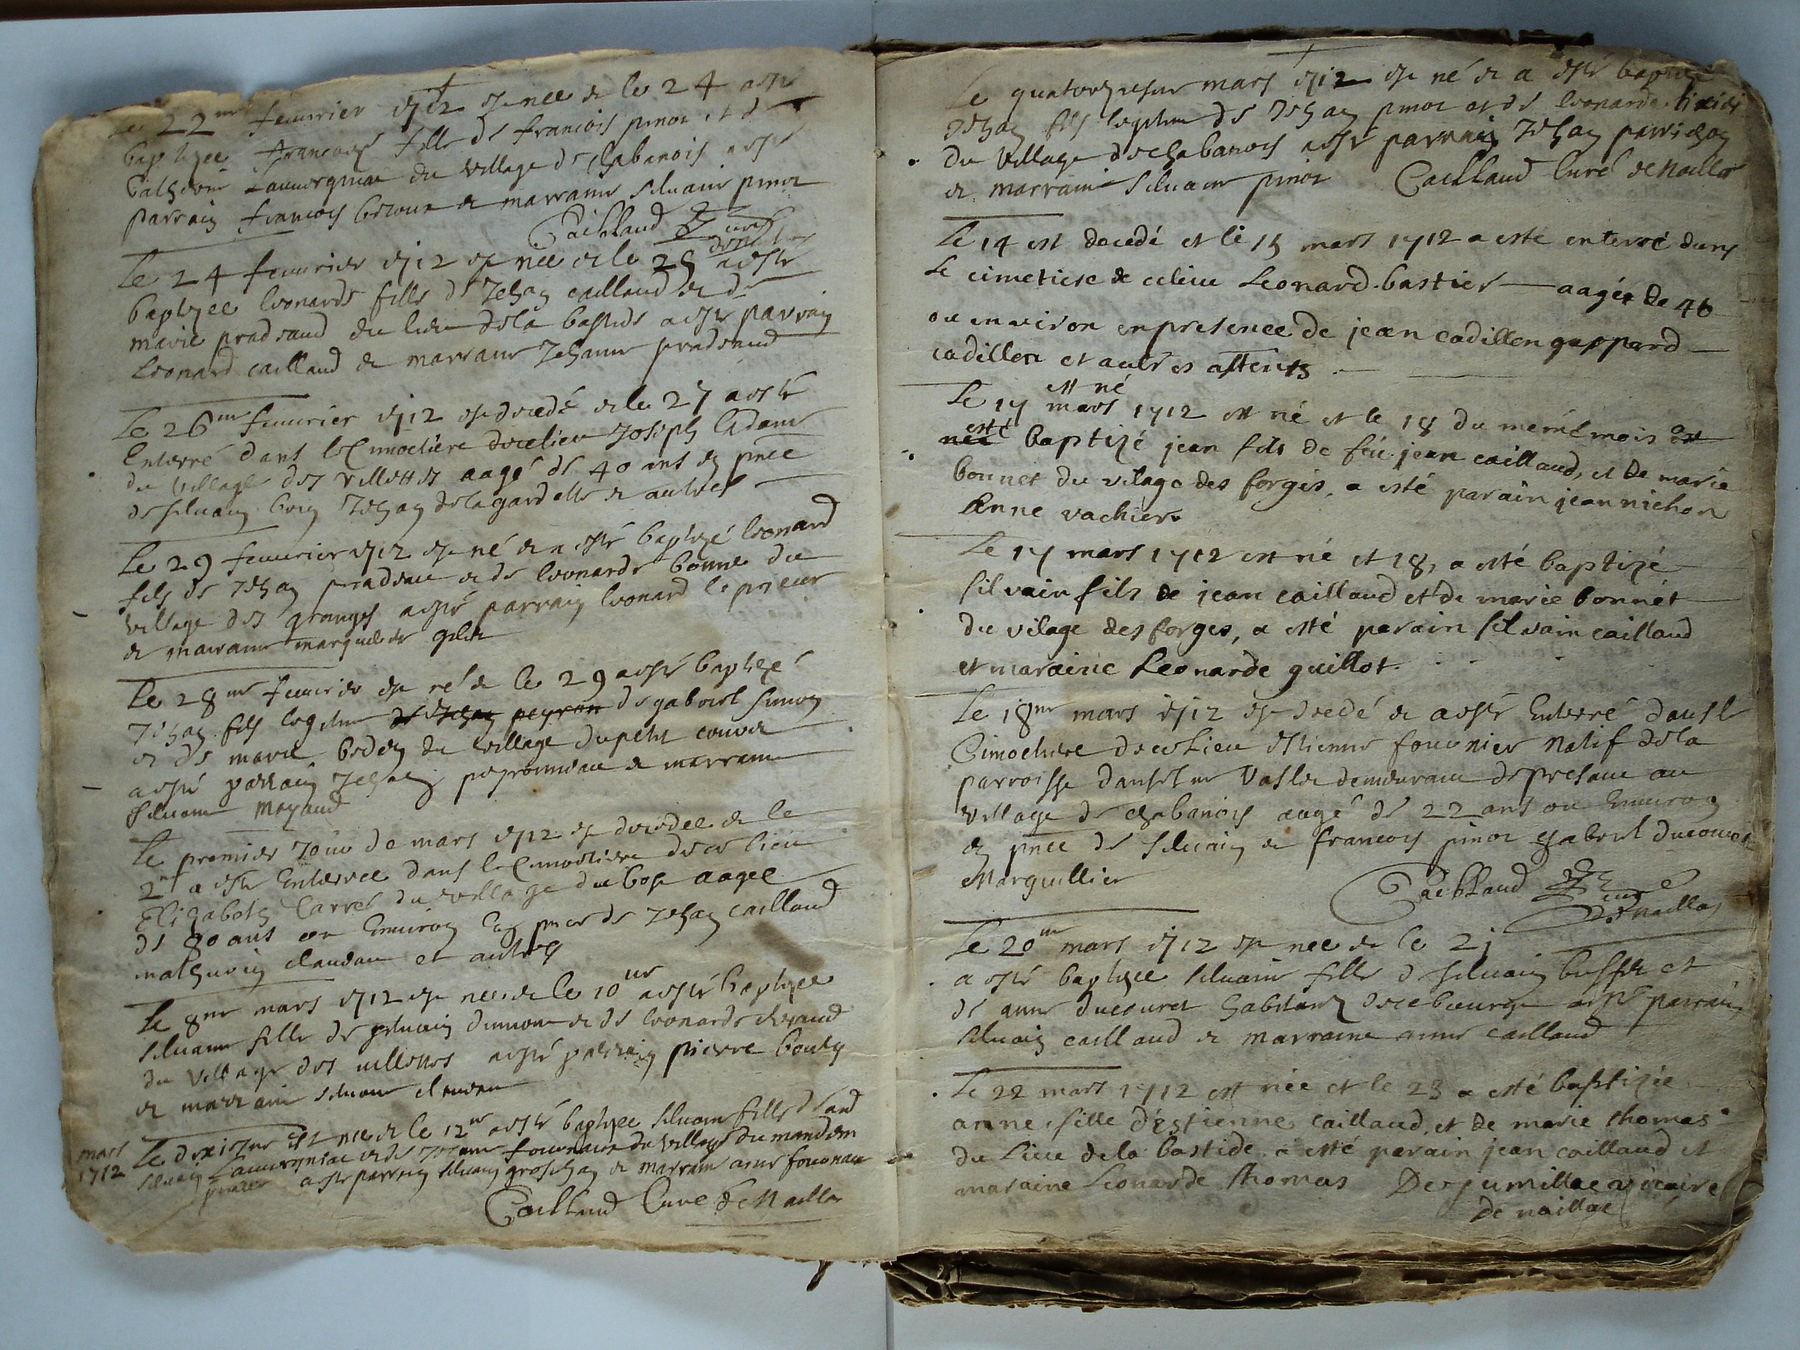 Le 22me feuvrier 1712 est nee et le 24 a esté
baptizee francoise fille de francois pinot et de
Catherine Lauvergniac du village de chabanois a esté
parrain francois et marraine silvaine pinot
Caillaud curé
Le 24 feuvrier 1712 est nee et le 25 a esté
baptizee leonarde fille de Jehan caillaud et de
marie pradeaud du lieu de la bastide a esté parrain
Leonard caillaud et marraine Jehanne pradeaud
Le 26me feuvrier 1712 est decedé et le 27 a esté
Enterré dans le Cimoetiere de ce lieu Joseph
du village des villettes aagé de 40 ans en pnce
de silvain Jehan delagardelle et autres
Le 29 feuvrier 1712 est né et a esté baptizé leonard
fils de Jehan pradeau et de leonarde bonne du
village des granges a esté parrain leonard leprieur
et marraine marguerite
Le 28me feuvrier est né et le 29 a esté baptizé
Jehan fils legitime de Jehan peyron de gabriel simon
et de marie du village du petit
a esté parrain Jehan peyronneau et marraine
silvaine Mayaud
Le premier Jour de mars 1712 est decedee et le
2me a esté Enterree dans le Cimoetiere de ce lieu
Elizabeth Carré du village du bost aagee
de 80 ans ou Environ En pnce de Jehan caillaud
mathurin claudau et autres
Le 8me mars 1712 est nee et le 10me a esté baptizee
silvaine fille de silvain et de leonarde
du village des villettes a esté parrain pierre
et marraine silvaine
mars
1712
Le dixiesme est nee et le 12me a esté baptizee silvaine fille de
silvain Lauvergniac et de fournaud du village du
a esté parrain silvain grosjehan et marraine anne fournaud
Caillaud Curé de Naillac
Le quatorziesme mars 1712 est né et a esté baptizé
Jehan fils legitime de Jehan pinot et de leonarde
du village de chabanois a esté parrain Jehan
et marraine silvaine pinot Caillaud Curé de Naillac
Le 14 est decedé et le 15 mars 1712 a esté enterré dans
Le cimetiere de celieu Leonard bastier aagée de 46
ou environ enpresence de jean cadillon gaspard
cadillon et autres
est né
Le 17 mars 1712 est né et le 18 du méme mois est
esté
née baptizé jean fils de féu jean caillaud, et de marie
bonnet du vilage des forges, a esté parain jean nichon
Anne vachier
Le 17 mars 1712 est né et 18, a esté baptizé
silvain fils de jean caillaud et de marie bonnét
du vilage des forges, a esté parain silvain caillaud
et maraine Leonarde guillot.
Le 18me mars 1712 est decedé et a esté Enterré dans le
Cimoetiere de ce lieu Estienne fournier Natif de la
parroisse demeurant de presant au
village de chabanois aagé de 22 ans ou Environ
en pnce de silvain et francois pinot gabriel
Marguillier
Caillaud curé
de Naillac
Le 20me mars 1712 est nee et le 21
a esté baptizee silvaine fille de silvain et
de anne habitans de ce bourg a esté parrain
silvain caillaud et marraine anne caillaud
Le 22 mars 1712 est née et le 23 a esté baptizée
anne, fille d'éstienne caillaud, et de marie thomas
du Lieu de la bastide a esté parain jean caillaud et
maraine Leonarde thomas Desjumillac vicaire
de naillac